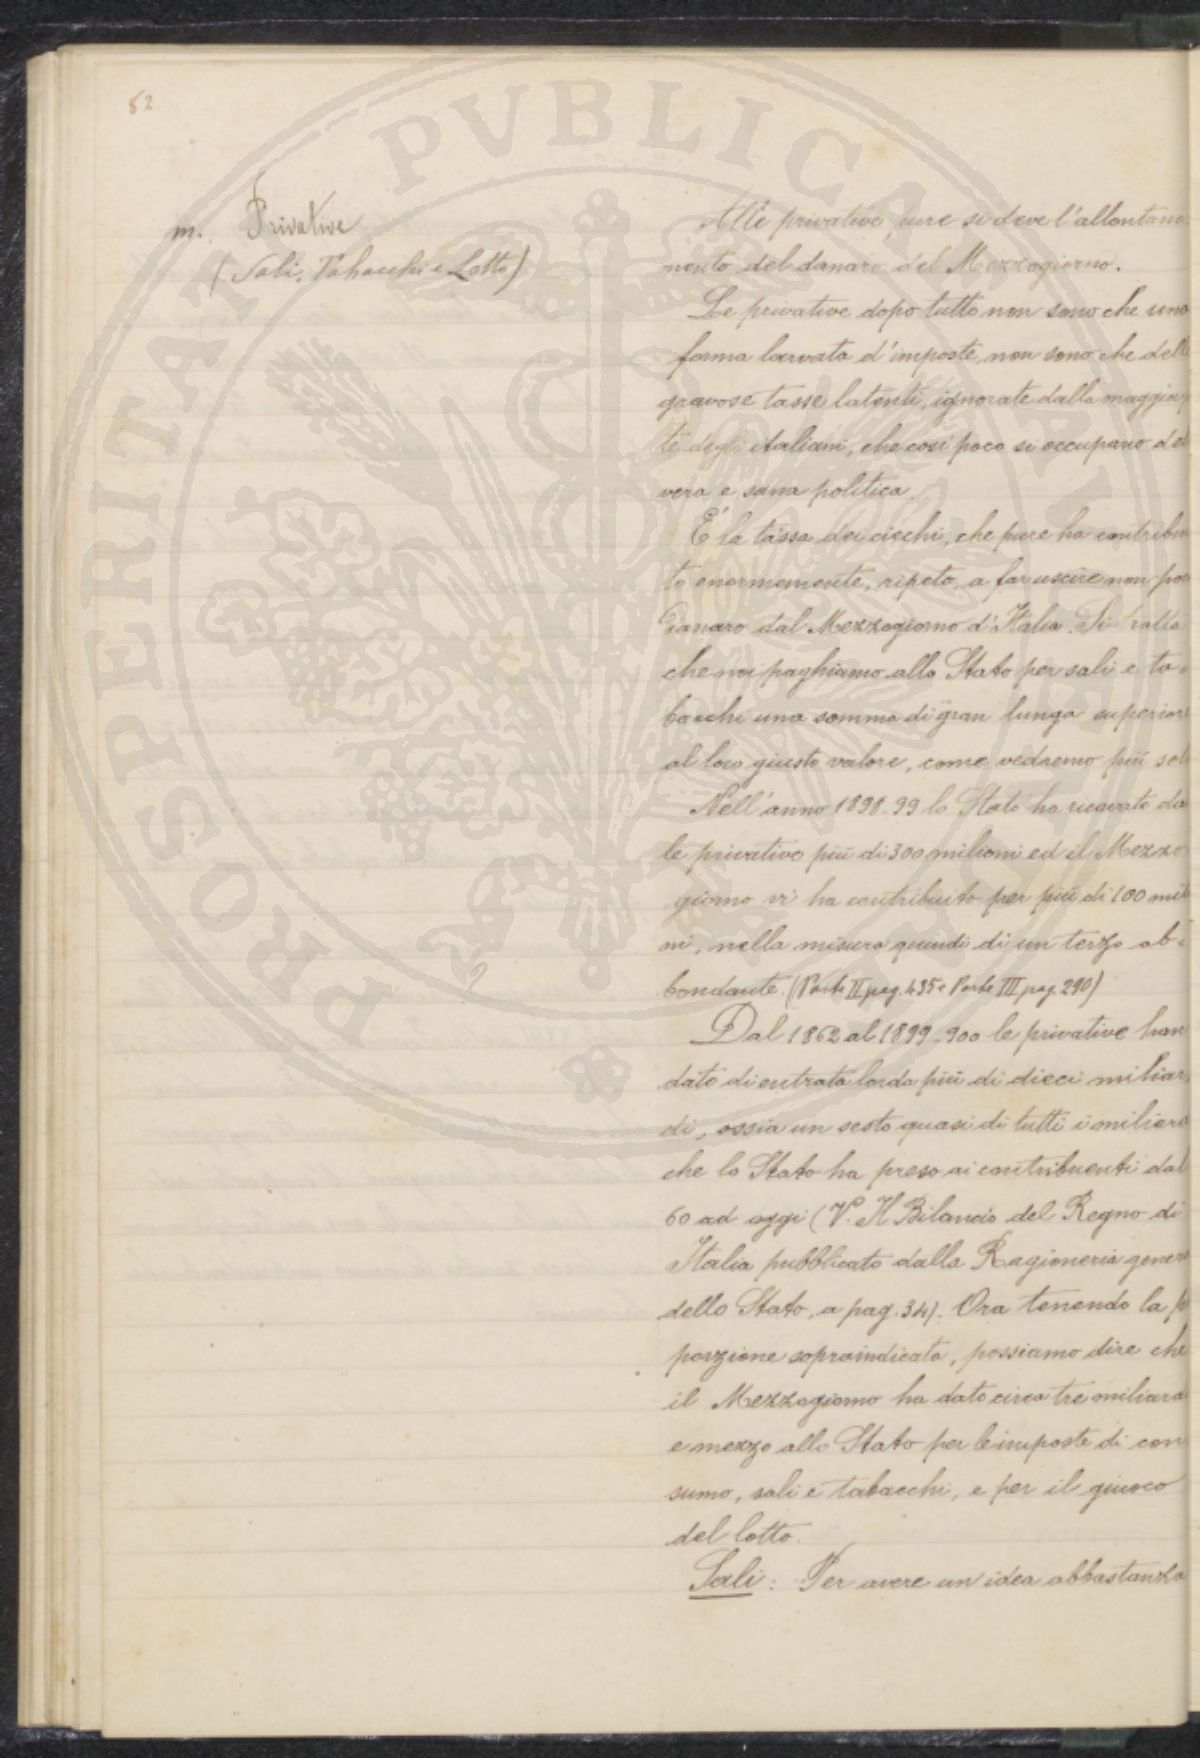 82
m. Privative
(Sali, Tabacchi e Lotto)
Alle privative pure si deve l'allontana
mento del danaro del Mezzogiorno.
Le privative dopo tutto non sono che una
forma larvata d'imposte, non sono che delle
gravose tasse latenti, ignorate dalla maggior p
te degli italiani, che così poco si occupano del
vera e sana politica.
È la tassa dei ciechi, che pure ha contribu
to enormemente, ripeto, a far uscire non poc
danaro dal Mezzogiorno d'Italia. Si tratta
che noi paghiamo allo Stato per sali e ta-
bacchi una somma di gran lunga superiore
al loro giusto valore, come vedremo più sot
Nell'anno 1898-99 lo Stato ha ricavato da
le privative più di 300 milioni ed il Mezzo
giorno vi ha contribuito per più di 100 mili
ni, nella misura quindi di un terzo ab-
bondante. (Parte II pag. 435 e Parte III pag. 290)
Dal 1862 al 1899-900 le privative han
dato di entrata lorda più di dieci miliar
di, ossia un sesto quasi di tutti i miliard
che lo Stato ha preso ai contribuenti dal
60 ad oggi (V. Il Bilancio del Regno di
Italia pubblicato dalla Ragioneria genera
dello Stato, a pag. 34). Ora tenendo la p
porzione sopraindicata, possiamo dire che
il Mezzogiorno ha dato circa tre miliard
e mezzo allo Stato per le imposte di con
sumo, sali e tabacchi, e per il giuoco
del lotto.
Sali: Per avere un'idea abbastanza
PROSPERITATI PVBLICAE